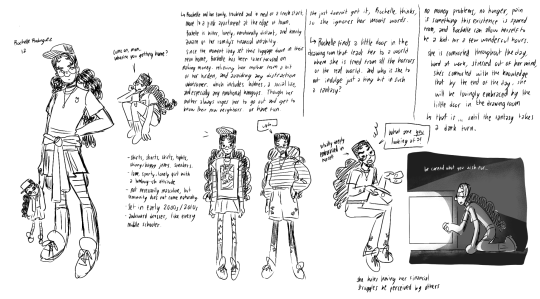 Rochelle Rodriguez
12
Come on, man,
where're you getting home?
- shirts, shorts, skirts, tights,
chunky/bappy jeans, sneakers.
- lame, sporty, lonely girl with
a tomboy-ish attitude
- not necessarily masculine, but
femininity does not come naturally
- Set in early 2000s/2010s
- awkward dresser, like every
middle schooler
↳ Rochelle and her family, evicted and in need of a fresh start,
move to a gold apartment at the edge of town.
Rochelle is bitter, lonely, emotionally distant, and keenly
aware of her family's financial instability.
Since the moment they set their luggage down at their
new home, Rochelle has been laser focused on
making money, relieving her mother from a bit
of her burden, and avoiding any distractions
whatsoever, which includes hobbies, a social life,
and especially any emotional hangups. Though her
mother always urges her to go out and get to
know their new neighbors or have fun.
She just doesn't get it, Rochelle thinks,
so she ignores her mom's words.
↳ Rochelle finds a little door in the
drawing room that leads her to a world
where she is freed from all the horrors
of the real world, and why is she to
not indulge just a tiny bit in such
a fantasy?
no money problems, no hunger, pain
is something this existence is spared
from, and Rochelle can allow herself to
be a kid for a few wonderful hours.
she is comforted throughout the day,
hard at work, stressed out of her mind,
she's comforted with the knowledge
that by the end of the day, she
will be lovingly embraced by the
little door in the drawing room
In that is... until the fantasy takes
a dark turn.
ugh..
What are you
looking at?!
she hates having her financial
struggles be perceived by others
be careful what you wish for...